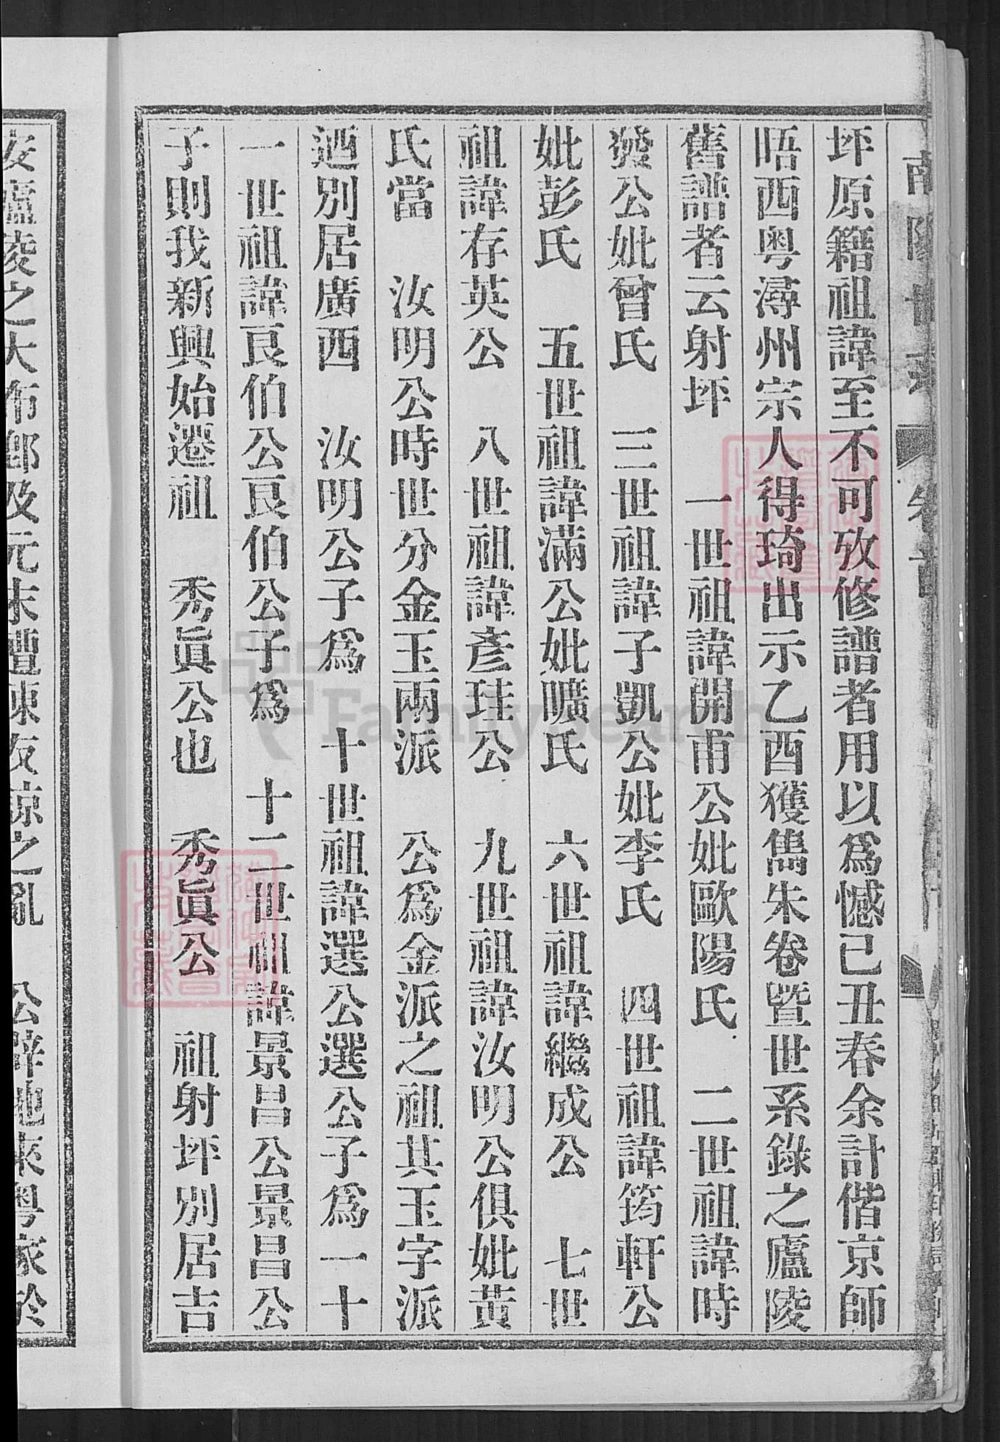 坪原籍祖諱至不可攷修譜者用以爲憾己丑春余計偕京師
晤西粤潯州宗人得琦出示乙酉獲雋朱卷暨世系錄之廬陵
舊譜者云射坪　一世祖諱開甫公妣歐陽氏　二世祖諱時
發公妣曾氏　三世祖諱子凱公妣李氏　四世祖諱筠軒公
妣彭氏　五世祖諱滿公妣曠氏　六世祖諱繼成公　七世
祖諱存英公　八世祖諱彥珪公　九世祖諱汝明公俱妣黃
氏當　汝明公時世分金玉兩派　公爲金派之祖其玉字派
迺別居廣西　汝明公子爲　十世祖諱選公選公子爲一十
一世祖諱艮伯公艮伯公子爲　十二世祖諱景昌公景昌公
子則我新興始遷祖　秀眞公也　秀眞公　祖射坪別居吉
安廬陵之大布鄉及元末遭陳友諒之亂　公辟地來粤家於
FamilySearch